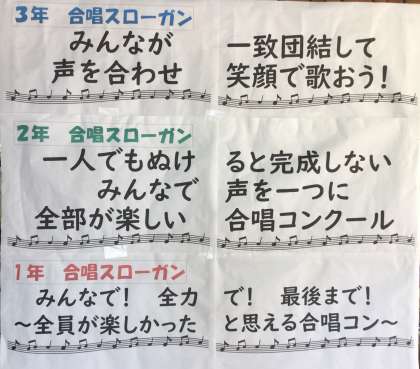 3年 合唱スローガン
みんなが 一致団結して
声を合わせ 笑顔で歌おう!
2年 合唱スローガン
一人でもぬけ ると完成しない
みんなで 声を一つに
全部が楽しい 合唱コンクール
1年 合唱スローガン
みんなで! 全力 で! 最後まで!
～全員が楽しかった と思える合唱コン～